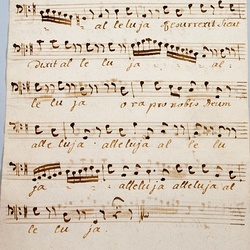 alleluja Resurrexit Sicut
dixit al le lu ja al
le lu ja ora pro nobis Deum
alle luja alleluja al le lu
ja alleluja alleluja al
le lu ja.